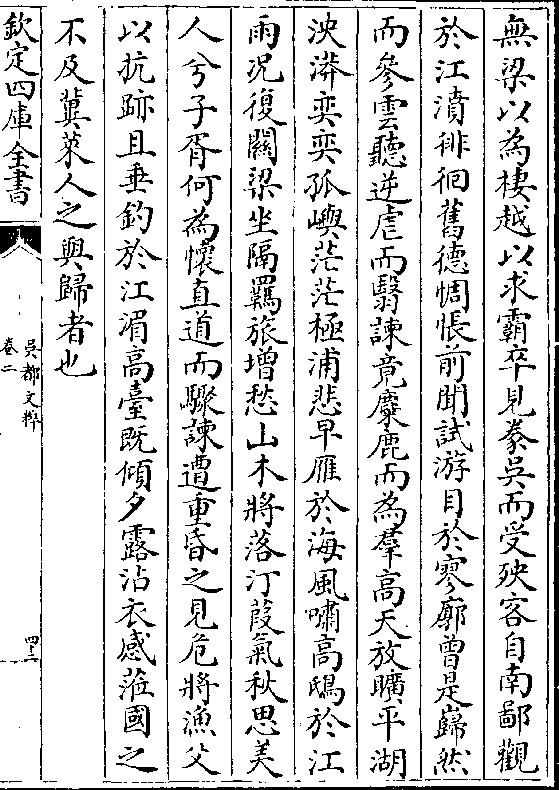 無梁以為棲越以求霸卒見豢吳而受殃客自南鄙觀
於江濆徘徊舊德惆悵前聞試游目於寥廓曾是巋然
而參雲聽逆虐而翳諫竟麋鹿而為羣高天放曠平湖
泱漭奕奕孤嶼茫茫極浦悲早雁於海風嘯高鴟於江
雨況復闗梁坐隔羈旅增愁山木將落汀葭氣秋思美
人兮子胥何為懷直道而驟諫遭重昏之見危將漁父
以抗跡且垂釣於江湄高臺既傾夕露沾衣感蒞國之
不及冀萊人之與歸者也
欽定四庫全書
吳都文粹
卷二